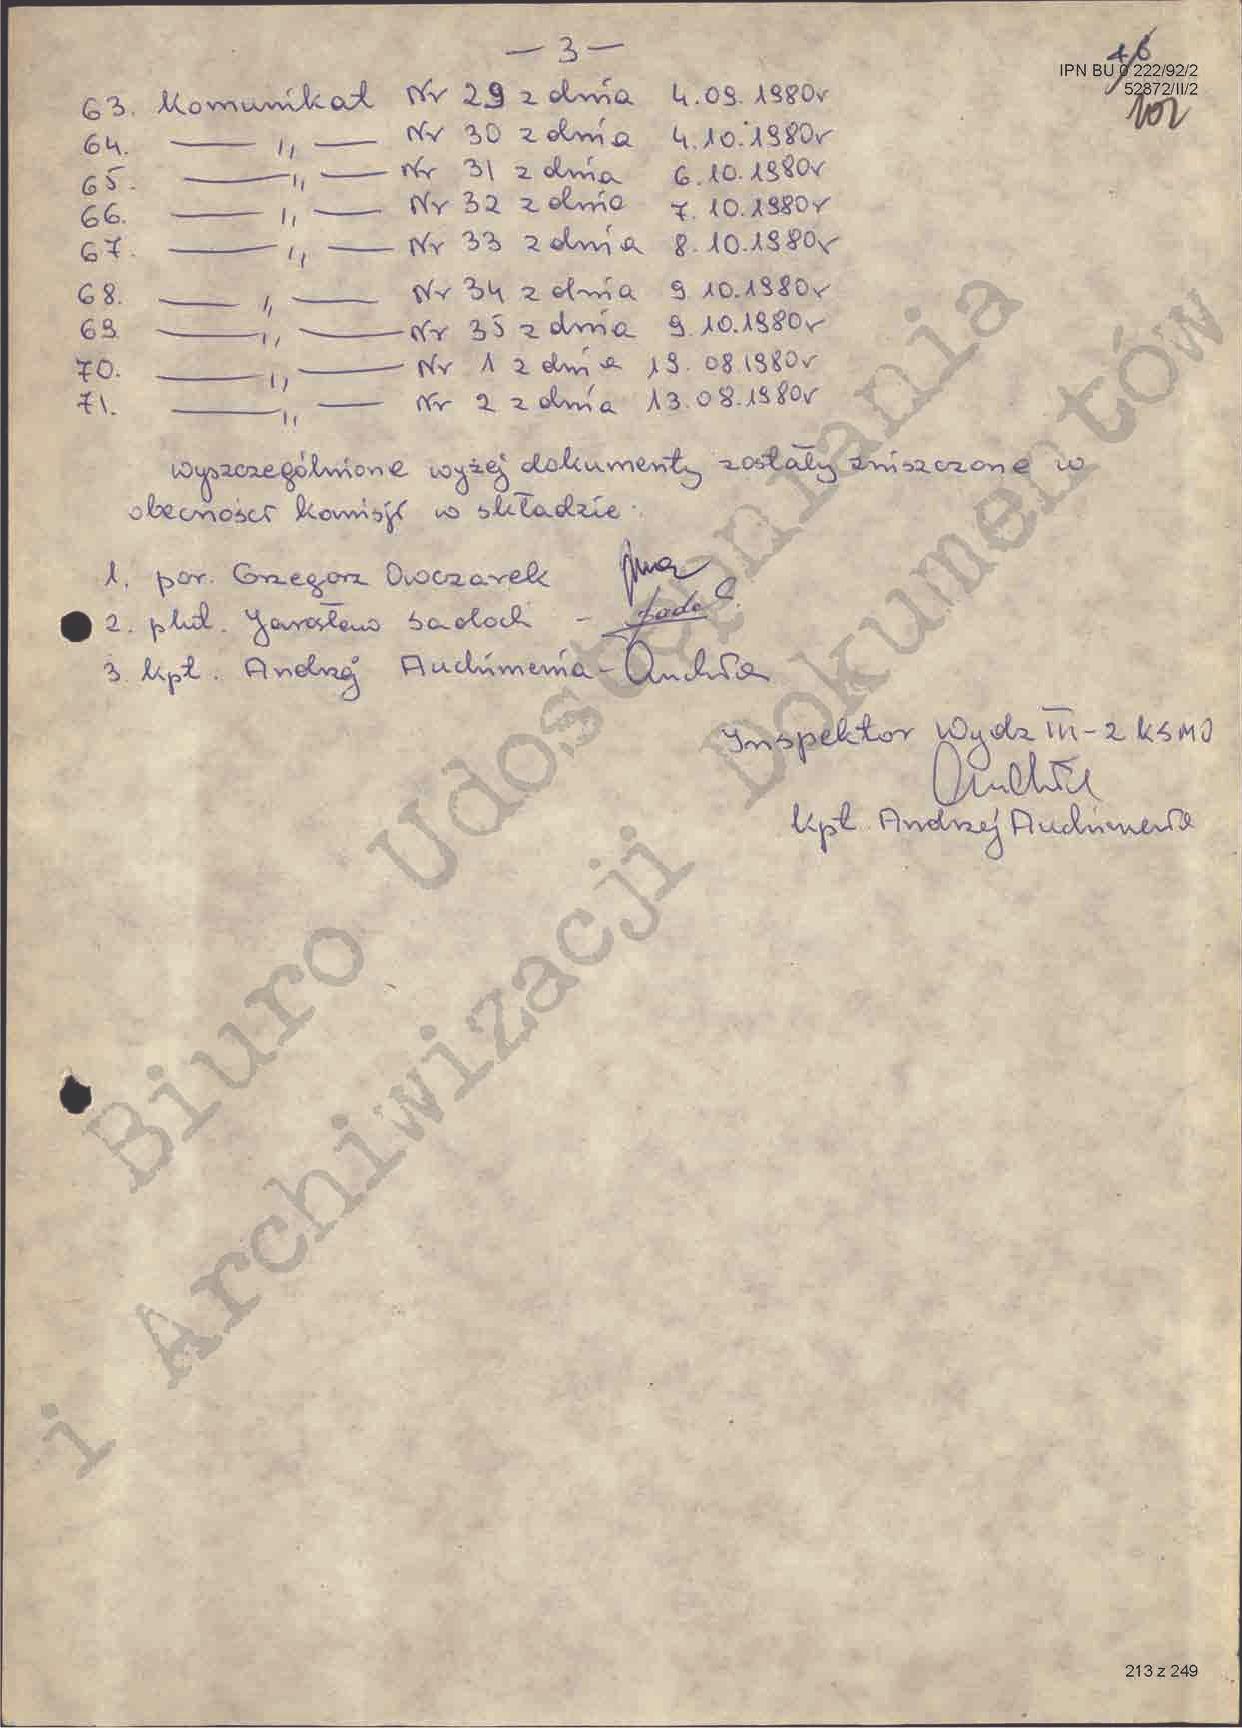 - 3 -
46
IPN BU 0 222/92/2
52872/II/2
102
63. Komunikat Nr 29 z dnia 4.09.1980r
64. — ,, — Nr 30 z dnia 4.10.1980r
65. — ,, — Nr 31 z dnia 6.10.1980r
66. — ,, — Nr 32 z dnia 7.10.1980r
67. — ,, — Nr 33 z dnia 8.10.1980r
68. — ,, — Nr 34 z dnia 9.10.1980r
69. — ,, — Nr 35 z dnia 9.10.1980r
70. — ,, — Nr 1 z dnia 19.08.1980r
71. — ,, — Nr 2 z dnia 13.08.1980r
Wyszczególnione wyżej dokumenty zostały zniszczone w
obecności komisji w składzie:
1. por. Grzegorz Owczarek
2. plut. Jarosław Sadoch -
3. kpt. Andrzej Auchimenia -
Inspektor Wydz III-2 KSMO
kpt. Andrzej Auchimenia
Biuro Udostępniania
i Archiwizacji Dokumentów
213 z 249